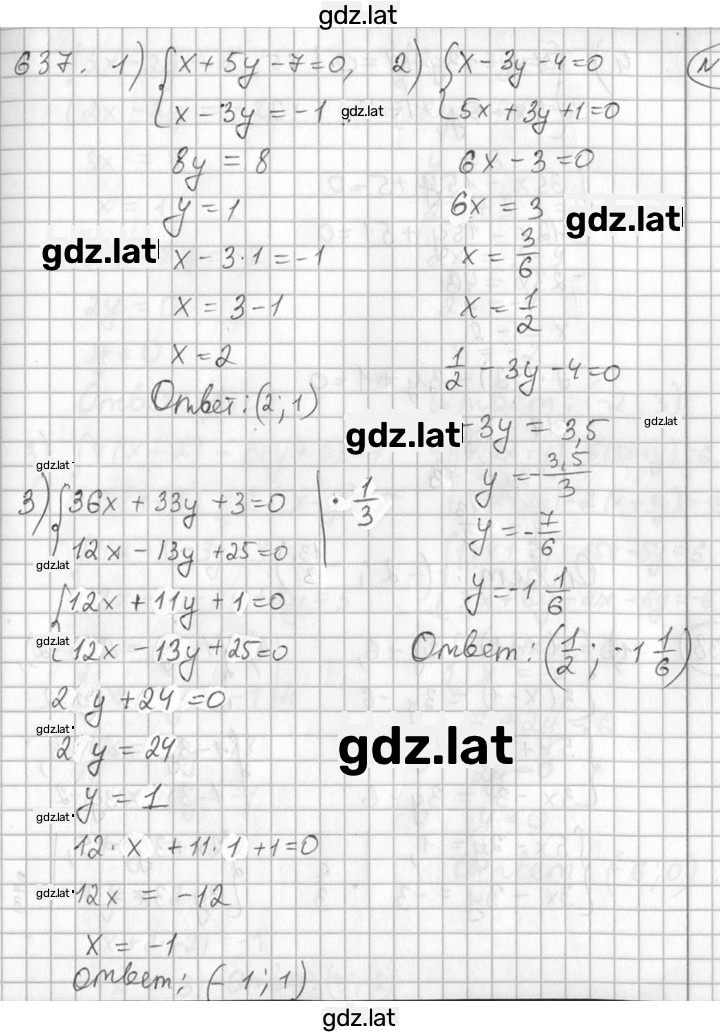 gdz.lat
637. 1) { x + 5y - 7 = 0,
x - 3y = -1 gdz.lat
8y = 8
y = 1
gdz.lat
x - 3·1 = -1
x = 3 - 1
x = 2
Ответ: (2; 1)
2) { x - 3y - 4 = 0
5x + 3y + 1 = 0
6x - 3 = 0
6x = 3
gdz.lat
x = 3/6
x = 1/2
1/2 - 3y - 4 = 0
gdz.lat
-3y = 3,5
gdz.lat
y = -3,5/3
y = -7/6
y = -1 1/6
Ответ: (1/2; -1 1/6)
gdz.lat
3) { 36x + 33y + 3 = 0 | · 1/3
12x - 13y + 25 = 0
gdz.lat
{ 12x + 11y + 1 = 0
gdz.lat
12x - 13y + 25 = 0
2 y + 24 = 0
gdz.lat
2 y = 24
gdz.lat
y = 1
gdz.lat
12· x + 11·1 + 1 = 0
gdz.lat
12x = -12
x = -1
Ответ: (-1; 1)
N
gdz.lat